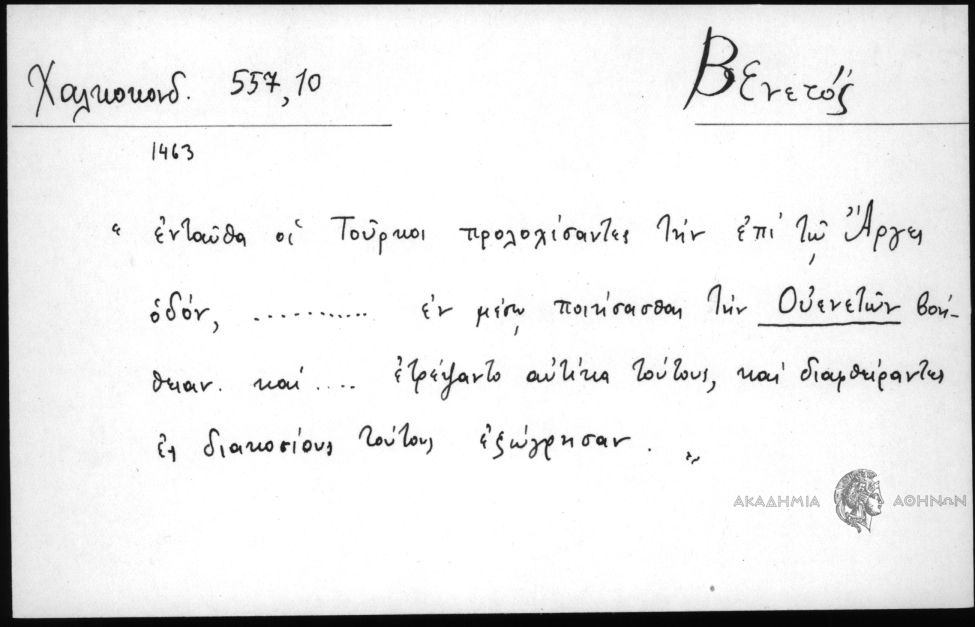 Χαλκοκονδ. 557,10
Βενετός
1463
" ἐνταῦθα οἱ Τοῦρκοι προλοχίσαντες τὴν ἐπὶ τῷ Ἄργει
ὁδόν, ........... ἐν μέσῳ ποιήσασθαι τὴν Οὐενετῶν βοή-
θειαν. καὶ .... ἐτρέψαντο αὐτίκα τούτους, καὶ διαφθείραντες
ἐς διακοσίους τούτους ἐζώγρησαν. "
ΑΚΑΔΗΜΙΑ ΑΘΗΝΩΝ